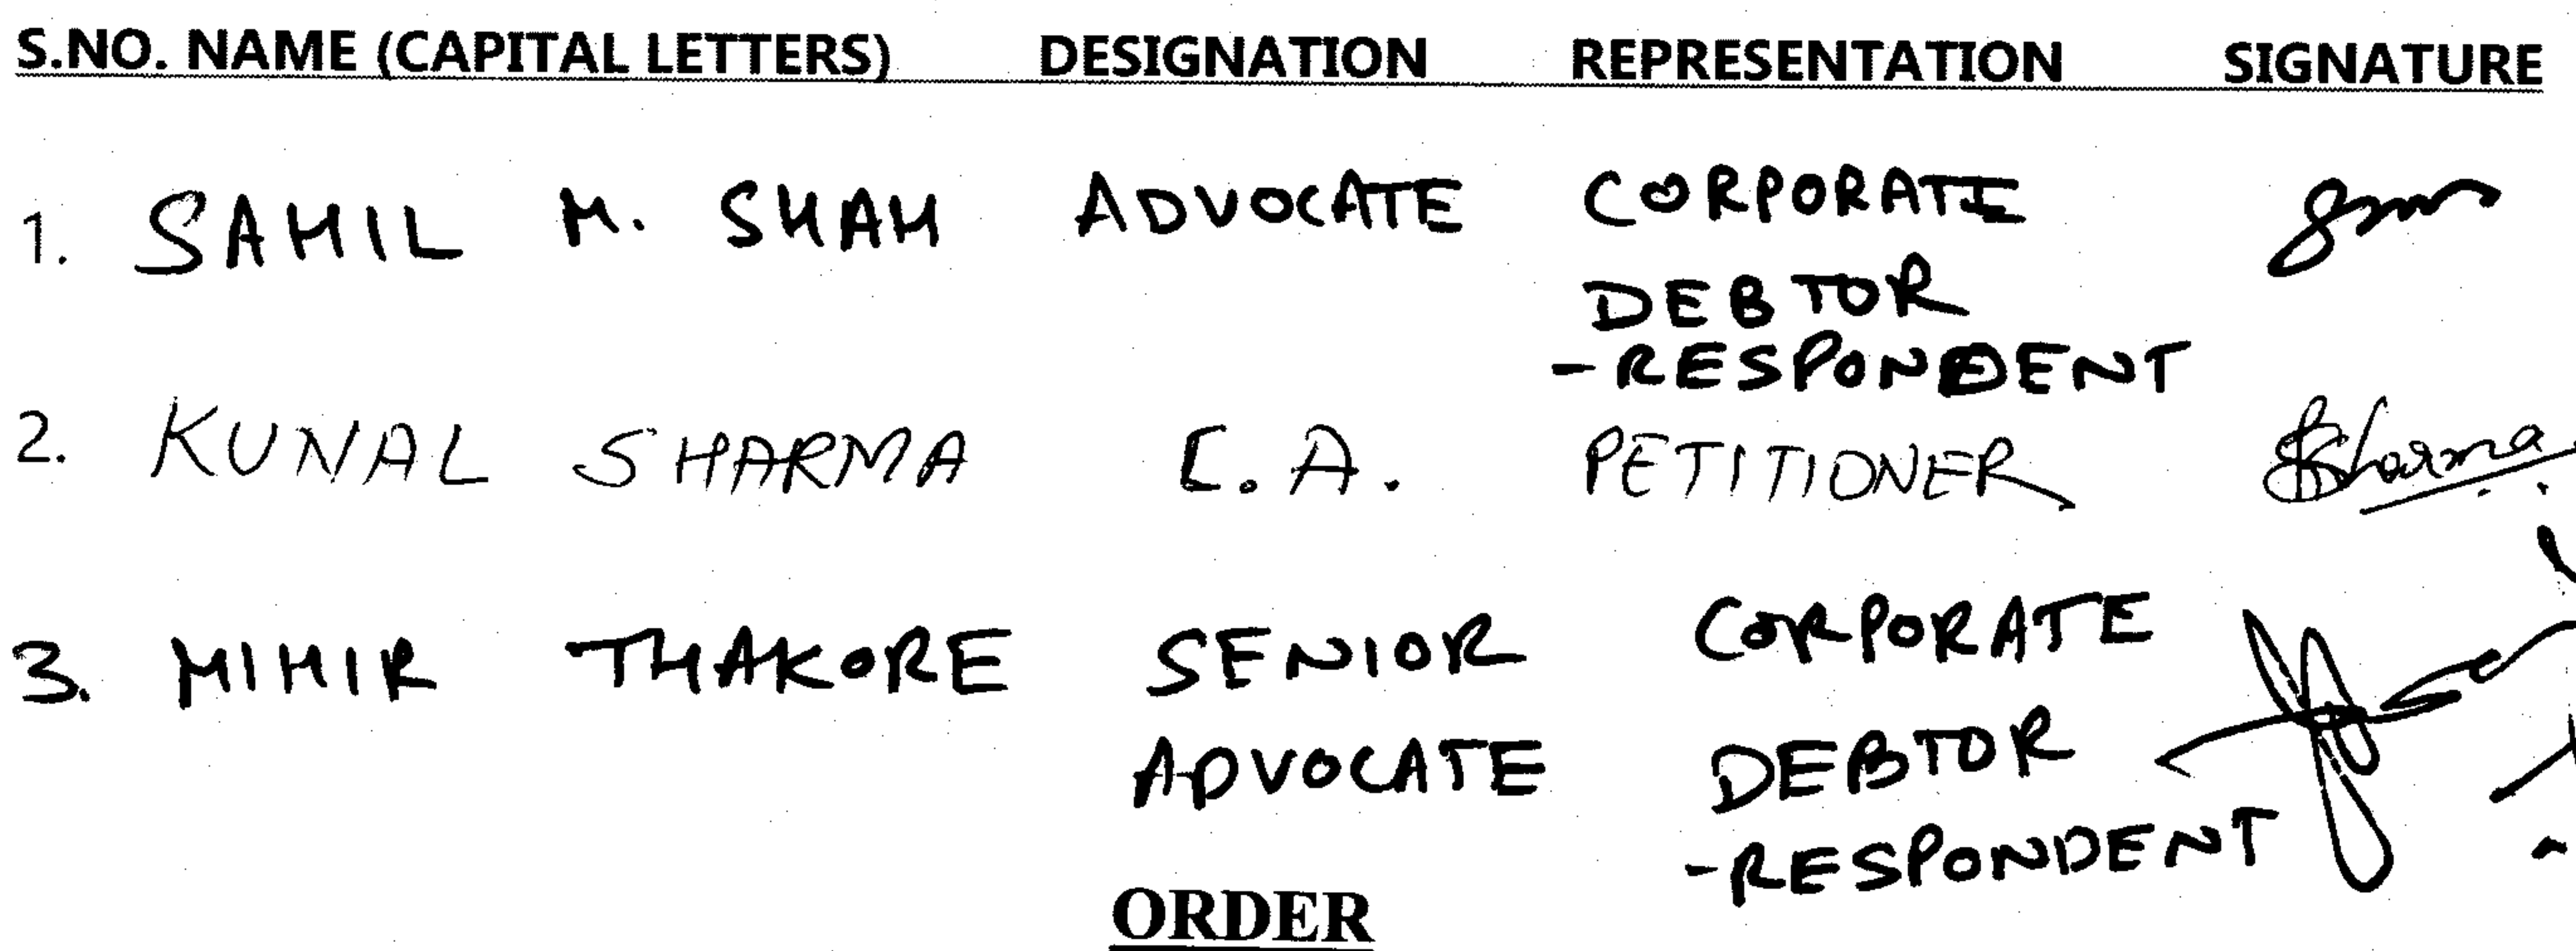 S.NO. NAME (CAPITAL LETTERS) DESIGNATION REPRESENTATION SIGNATURE
1. SAHIL M. SHAH ADVOCATE CORPORATE
DEBTOR
-RESPONDENT
2. KUNAL SHARMA C.A. PETITIONER Sharma
3. MIHIR THAKORE SENIOR CORPORATE
ADVOCATE DEBTOR
-RESPONDENT
ORDER